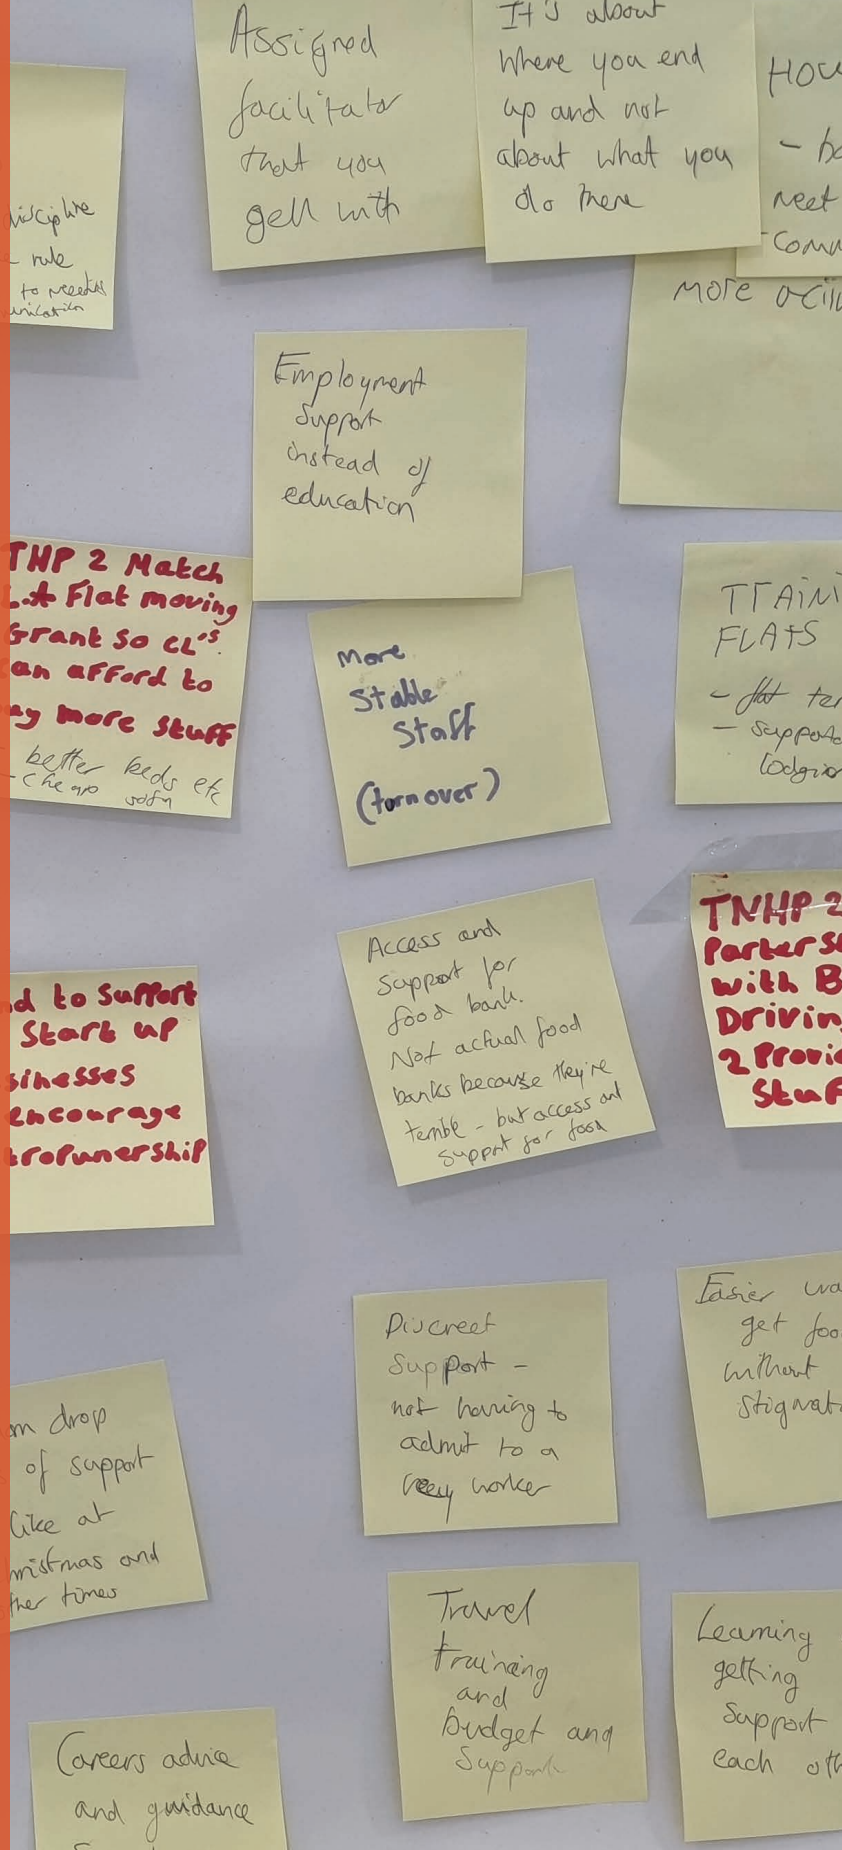 discipline
rule
to
Assigned
facilitator
that you
gell with
It's about
where you end
up and not
about what you
do there
HOU
- bo
neet
COMM
more
Employment
Support
instead of
education
THP 2 Match
L.A Flat moving
Grant so CL's
an afford to
ay more stuff
better beds etc
- cheap sofa
More
Stable
Staff
(turnover)
TRAINI
FLATS
- flat
- supporte
lodgin
nd to Support
Start up
sinesses
encourage
tropunership
Access and
support for
food bank.
Not actual food
banks because they're
terrible - but access and
support for food
TNHP 2
Parterst
with B
Drivin
2 Provi
Stuf
Discreet
Support -
not having to
admit to a
key worker
Easier wa
get foo
without
stigmat
om drop
of support
like at
hristmas and
ther times
Travel
training
and
budget and
support
Learning
getting
support
each oth
Careers advice
and guidance